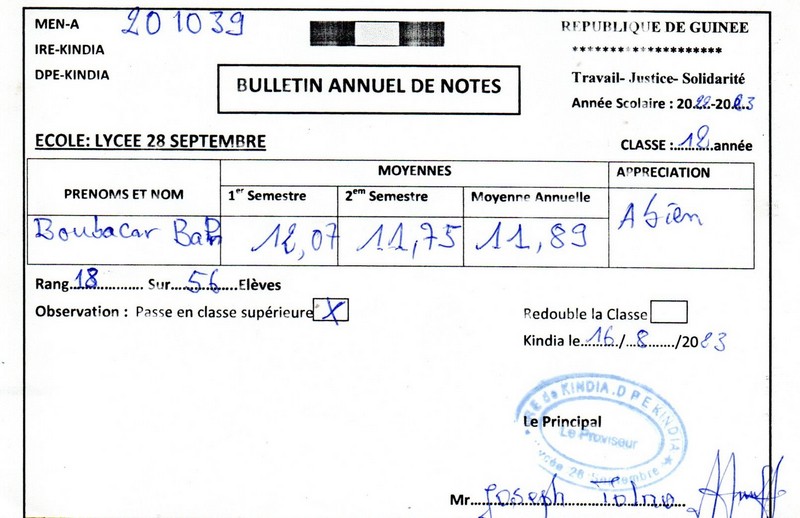 MEN-A
201039
IRE-KINDIA
DPE-KINDIA
REPUBLIQUE DE GUINEE
********************
Travail- Justice- Solidarité
Année Scolaire : 2022-2023
BULLETIN ANNUEL DE NOTES
ECOLE: LYCEE 28 SEPTEMBRE
CLASSE :..12..année
PRENOMS ET NOM
MOYENNES
APPRECIATION
1er Semestre
2em Semestre
Moyenne Annuelle
Boubacar Bah
12,07
11,75
11,89
A bien
Rang 18 Sur 56 Elèves
Observation : Passe en classe supérieure X
Redouble la Classe
Kindia le 16/8/2023
IRE de KINDIA. DPE KINDIA
Le Principal
Le Proviseur
Lycée 28 Septembre
Mr Joseph Tolno